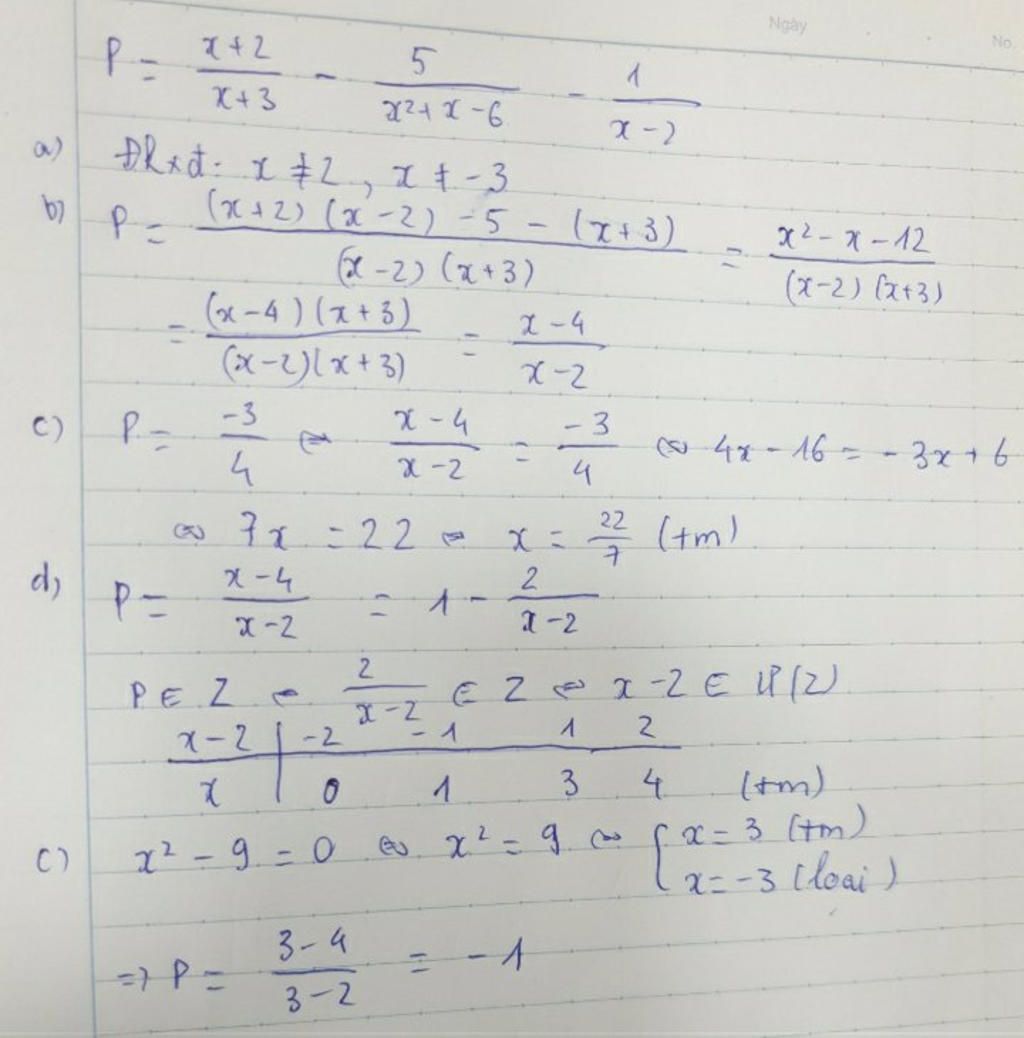 Ngày
No.
P = \frac{x+2}{x+3} - \frac{5}{x²+x-6} - \frac{1}{x-2}
a) ĐKxđ: x ≠ 2, x ≠ -3
b) P = \frac{(x+2)(x-2)-5-(x+3)}{(x-2)(x+3)} = \frac{x²-x-12}{(x-2)(x+3)}
= \frac{(x-4)(x+3)}{(x-2)(x+3)} = \frac{x-4}{x-2}
c) P = \frac{-3}{4} ⇔ \frac{x-4}{x-2} = \frac{-3}{4} ⇔ 4x - 16 = -3x + 6
⇔ 7x = 22 ⇔ x = \frac{22}{7} (tm)
d) P = \frac{x-4}{x-2} = 1 - \frac{2}{x-2}
P ∈ Z ⇔ \frac{2}{x-2} ∈ Z ⇔ x-2 ∈ Ư(2)
x-2 | -2 -1 1 2
x | 0 1 3 4 (tm)
c) x² - 9 = 0 ⇔ x² = 9 ⇔ { x = 3 (tm)
x = -3 (loai)
=> P = \frac{3-4}{3-2} = -1